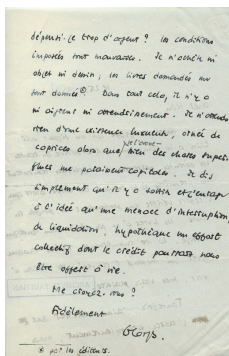 dépenti. le trop d'argent ? les conditions
imposées sont mauvaises. Je n'achète ni
objet ni dessin, les livres demandés me
sont donnés ⊛. Dans tout cela, il n'y a
ni aigreur ni attendrissement. Je n'attends
rien d'une existence luxueuse, ornée de
caprices alors que bien des choses
me paraissent capitales. Je dis
simplement qu'il y a
à l'idée qu'une menace d'interruption
de liquidation hypothèque un effort
collectif dont le crédit pourrait nous
être offert à vie.
Me croyez-vous ?
Fidèlement
⊛ par les éditeurs.